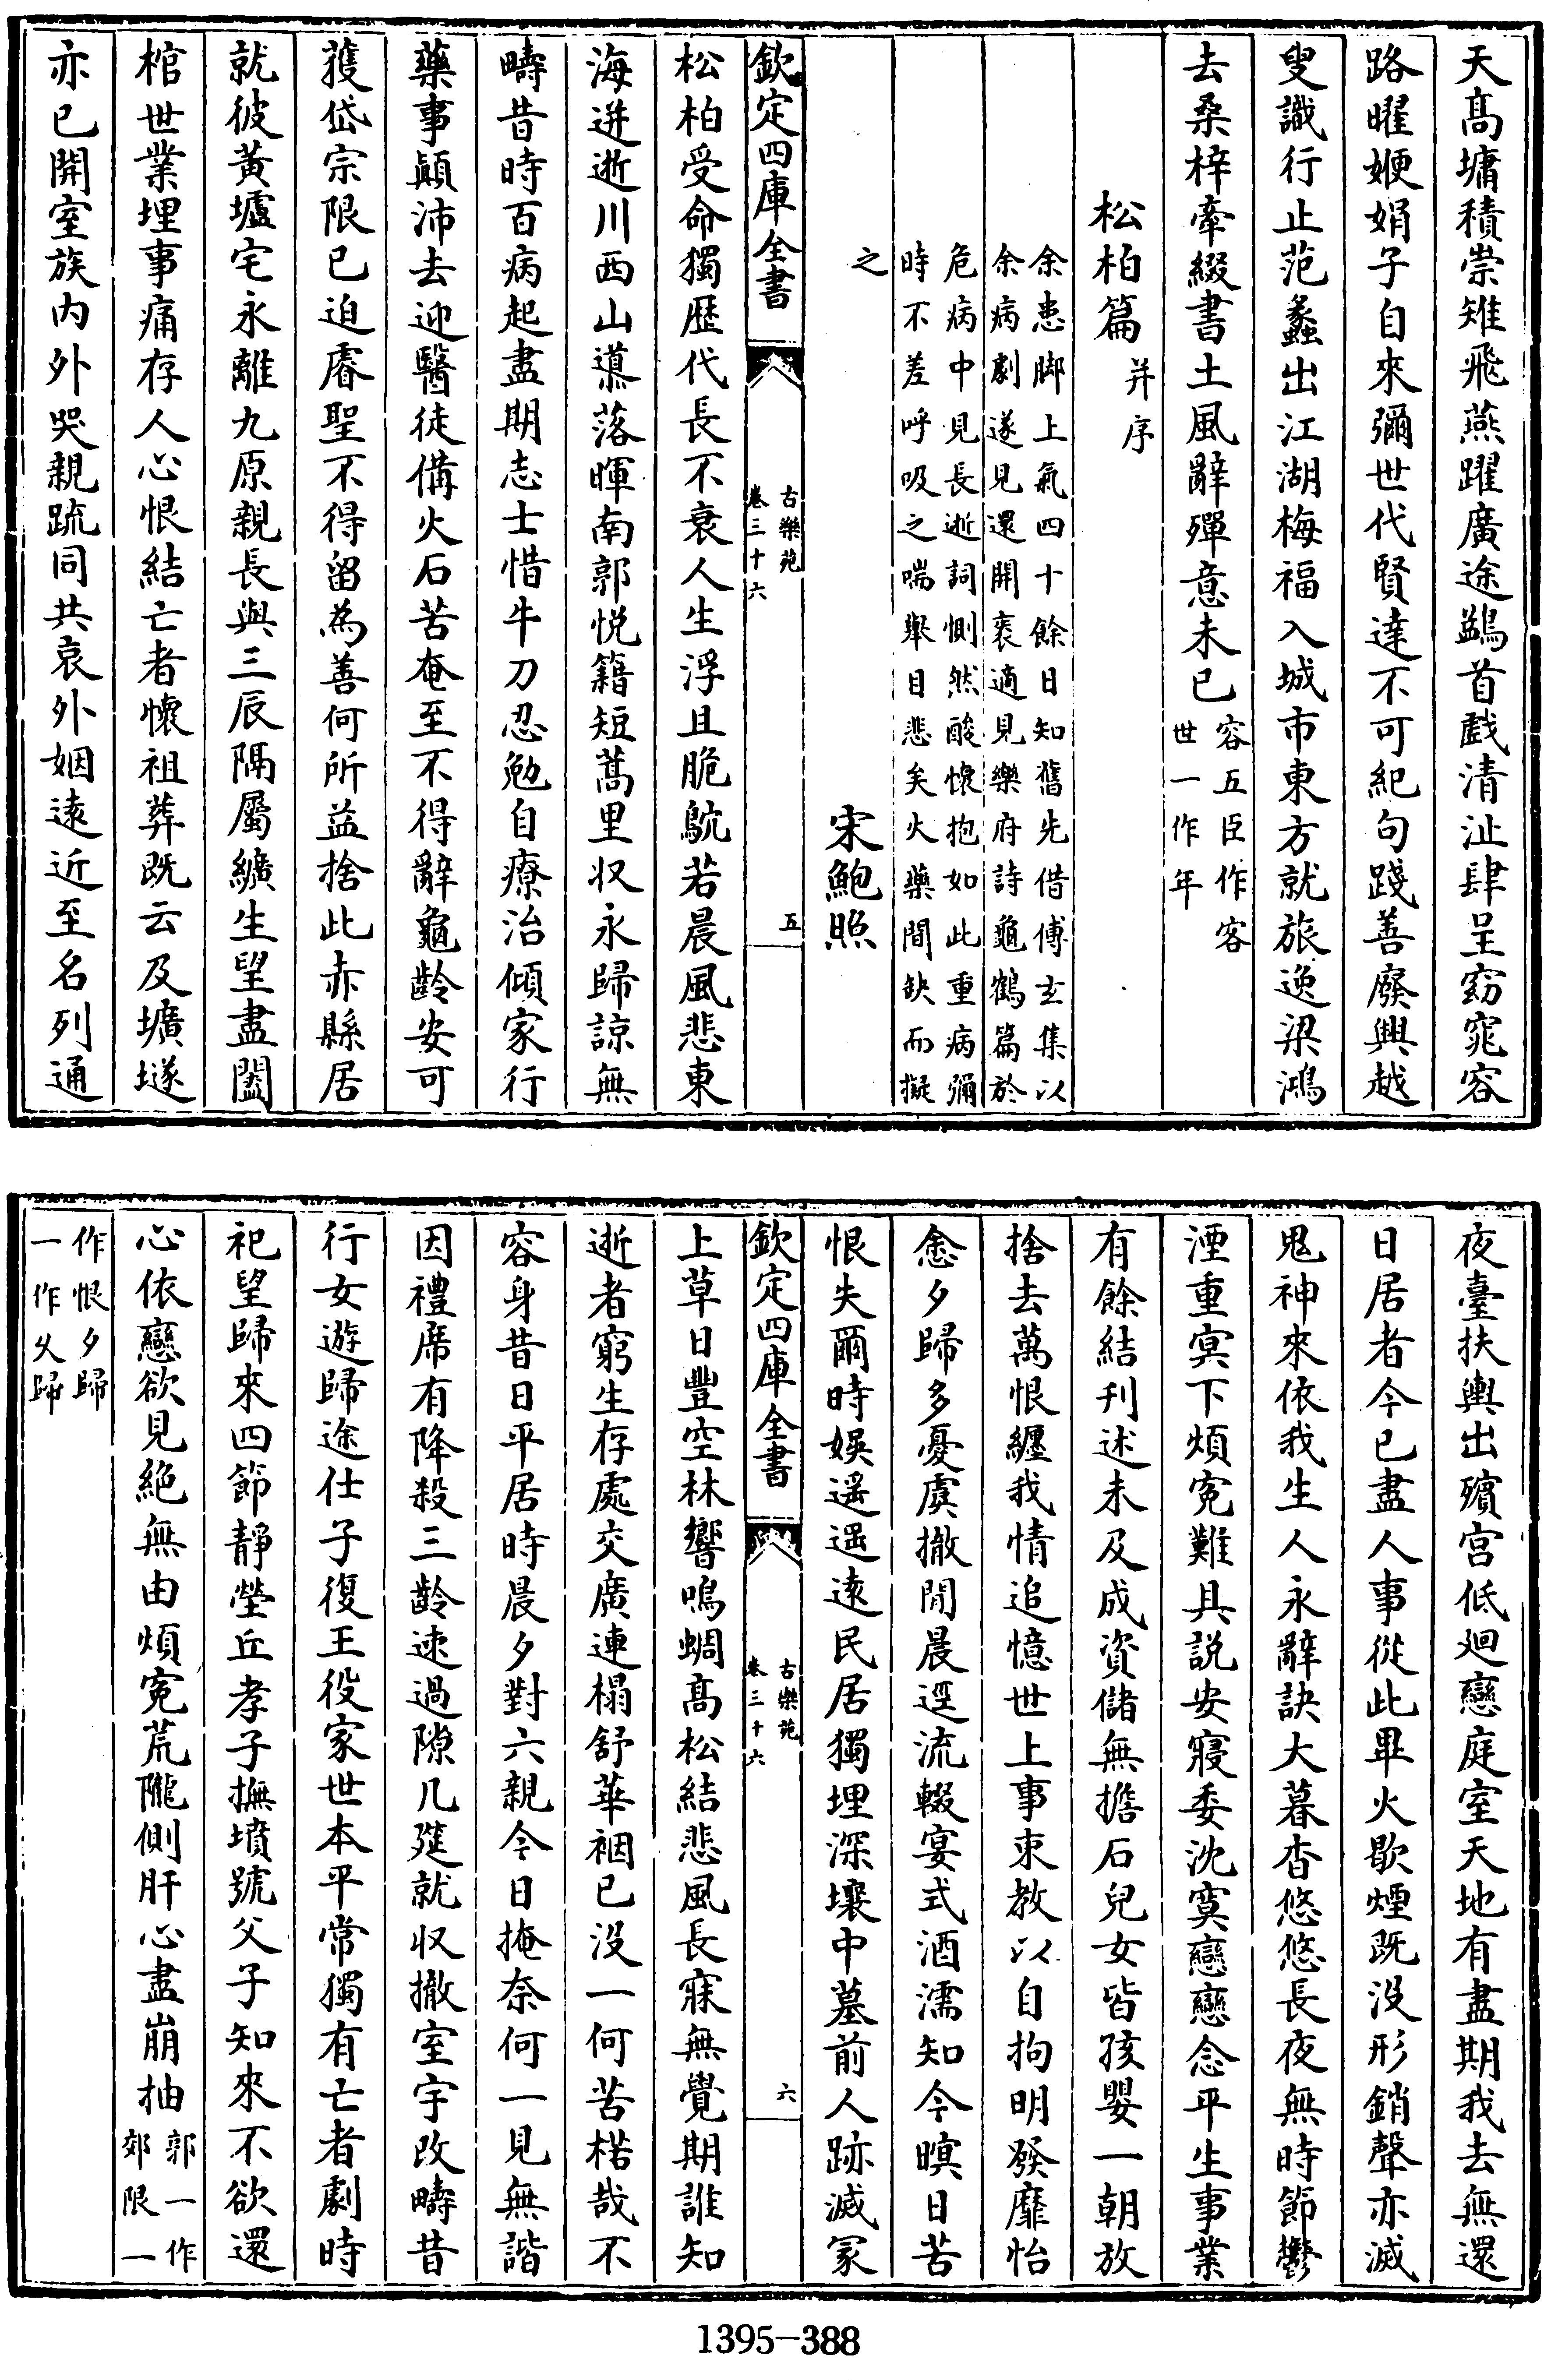 天髙墉積崇雉飛燕躍廣途鷁首戯清沚肆呈窈窕容
路曜㛹娟子自來彌世代賢達不可紀句踐善廢興越
叟識行止范蠡出江湖梅福入城市東方就旅逸梁鴻
去桑梓牽綴書土風辭殫意未已容五臣作客
世一作年
松柏篇并序
余患脚上氣四十餘日知舊先借傅玄集以
余病劇遂見還開袠適見樂府詩龜鶴篇於
危病中見長逝詞惻然酸懷抱如此重病彌
時不差呼吸之喘舉目悲矣火藥間缺而擬
之
宋鮑照
欽定四庫全書
古樂苑
卷三十六
五
松柏受命獨歴代長不衰人生浮且脆鴥若晨風悲東
海迸逝川西山導落暉南郭悦籍短蒿里収永歸諒無
疇昔時百病起盡期志士惜牛刀忍勉自療治傾家行
藥事顚沛去迎醫徒備火石苦奄至不得辭龜齡安可
獲岱宗限已迫睿聖不得留為善何所益捨此赤縣居
就彼黄墟宅永離九原親長與三辰隔屬纊生望盡闔
棺世業埋事痛存人心恨結亡者懷祖葬既云及壙墜
亦已開室族内外哭親疏同共哀外姻逺近至名列通
夜臺扶輿出殯宫低廻戀庭室天地有盡期我去無還
日居者今已盡人事從此畢火歇煙既没形銷聲亦滅
鬼神來依我生人永辭訣大暮杳悠悠長夜無時節鬱
湮重冥下煩寃難具説安寢委沈寞戀戀念平生事業
有餘結刋述未及成資儲無擔石兒女皆孩嬰一朝放
捨去萬恨纒我情追憶世上事束教以自拘明發靡怡
悆夕歸多憂虞撤閒晨逕流輟宴式酒濡知今瞑日苦
恨失爾時娛遥遥逺民居獨埋深壤中墓前人跡滅冢
欽定四庫全書
古樂苑
卷三十六
六
上草日豐空林響鳴蜩髙松結悲風長寐無覺期誰知
逝者窮生存處交廣連榻舒華裀已没一何苦楛哉不
容身昔日平居時晨夕對六親今日掩奈何一見無諧
因禮席有降殺三齡速過隙几筵就収撤室宇改疇昔
行女遊歸途仕子復王役家世本平常獨有亡者劇時
祀望歸來四節靜塋丘孝子撫墳號父子知來不欲還
心依戀欲見絶無由煩寃荒隴側肝心盡崩抽郭一作
郊限一
作恨夕歸
一作乆歸
1395-388